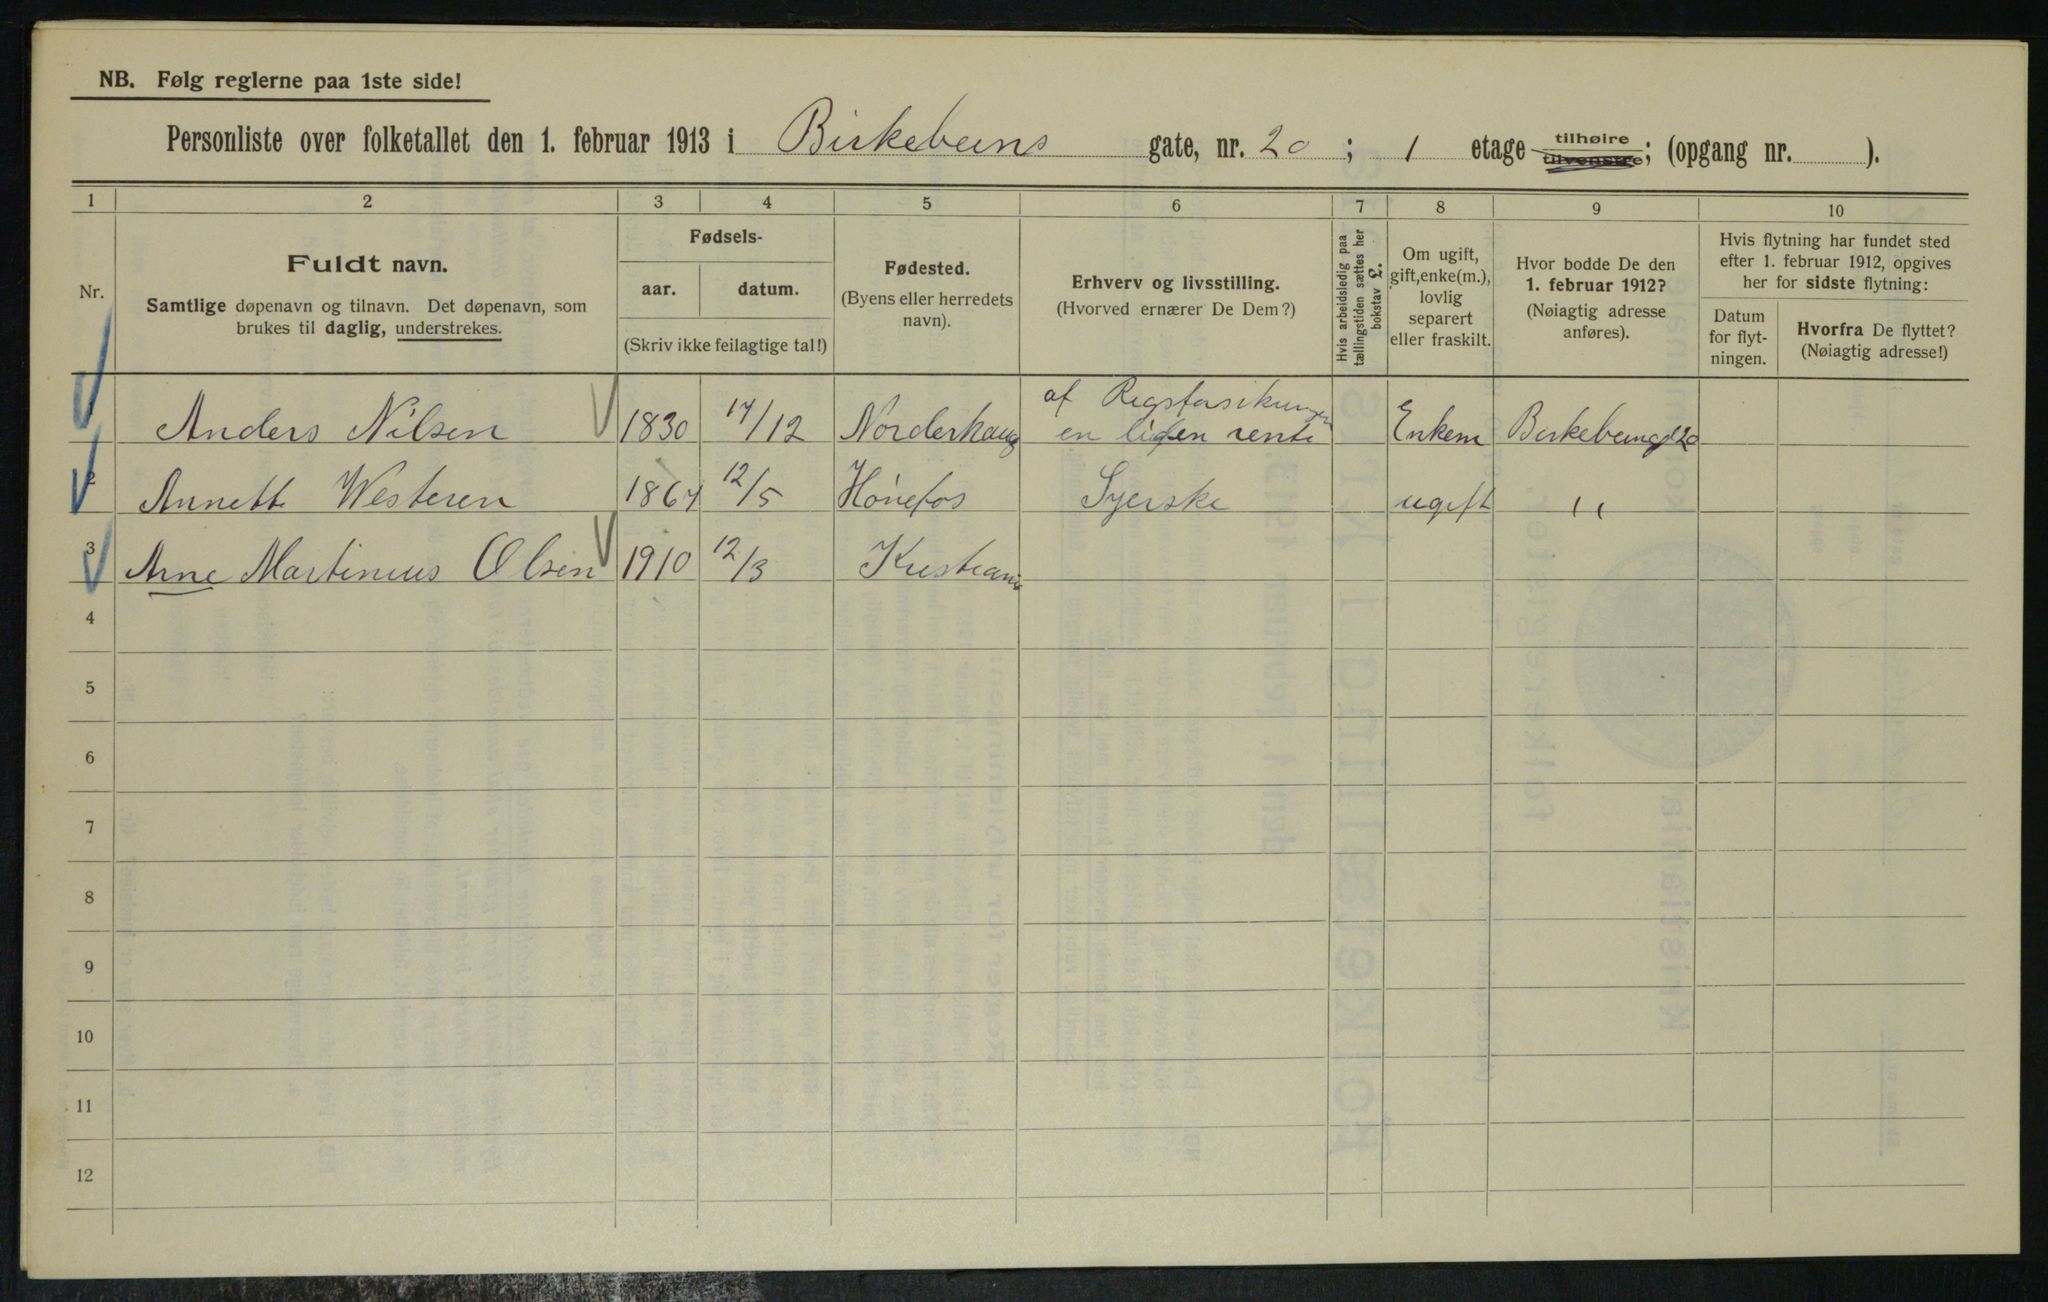 NB. Følg reglerne paa 1ste side!
Personliste over folketallet den 1. februar 1913 i Birkebeens gate, nr. 20 ; 1 etage tilhøire tilvenstre; (opgang nr. ).
1 2 3 4 5 6 7 8 9 10
Nr.
Fuldt navn.
Samtlige døpenavn og tilnavn. Det døpenavn, som
brukes til daglig, understrekes.
Fødsels-
aar. datum.
(Skriv ikke feilagtige tal!)
Fødested.
(Byens eller herredets
navn).
Erhverv og livsstilling.
(Hvorved ernærer De Dem?)
Hvis arbeidsledig paa
tællingstiden sættes her
bokstav L.
Om ugift,
gift, enke(m.),
lovlig
separert
eller fraskilt.
Hvor bodde De den
1. februar 1912?
(Nøiagtig adresse
anføres).
Hvis flytning har fundet sted
efter 1. februar 1912, opgives
her for sidste flytning:
Datum
for flyt-
ningen.
Hvorfra De flyttet?
(Nøiagtig adresse!)
1 Anders Nilsen 1830 17/12 Norderhaug af en liden rente Enkem Birkebeingd 20
2 Annette Westeren 1867 12/5 Hönefos Syerske ugift ,,
3 Arne Martinius Olsen 1910 12/3 Kristiania
4
5
6
7
8
9
10
11
12